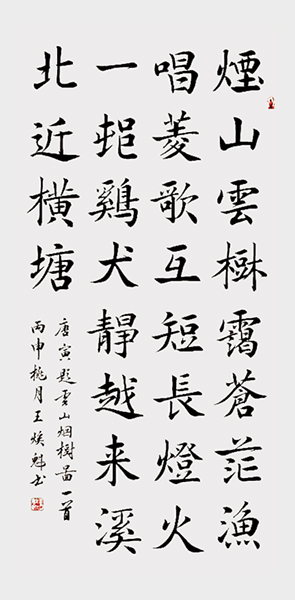 煙山雲樹靄蒼茫漁
唱菱歌互短長燈火
一邨鷄犬靜越来溪
北近横塘
唐寅题雲山烟樹啚一首
丙申桃月王焕魁书